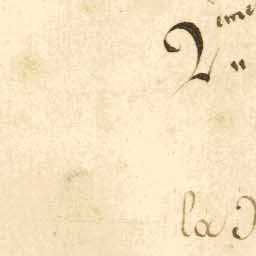 2ème "
la